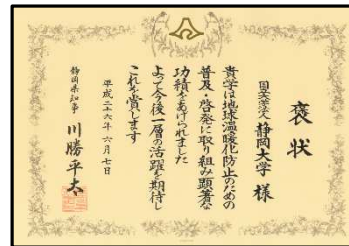 褒状
国立大学法人 静岡大学 様
貴学は地球温暖化防止のための
普及・啓発に取り組み顕著な
功績をあげられました
よって今後一層の活躍を期待し
これを賞します
平成二十六年六月七日
静岡県知事 川勝平太